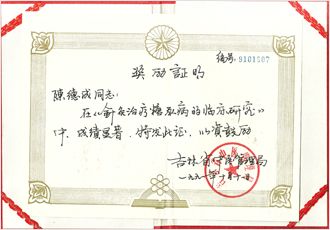 编号: 9101507
奖励证明
陈德成同志:
在《针灸治疗糖尿病的临床研究》
中,成绩显著,特发此证,以资鼓励
吉林省中医管理局
一九九一年十月十一日